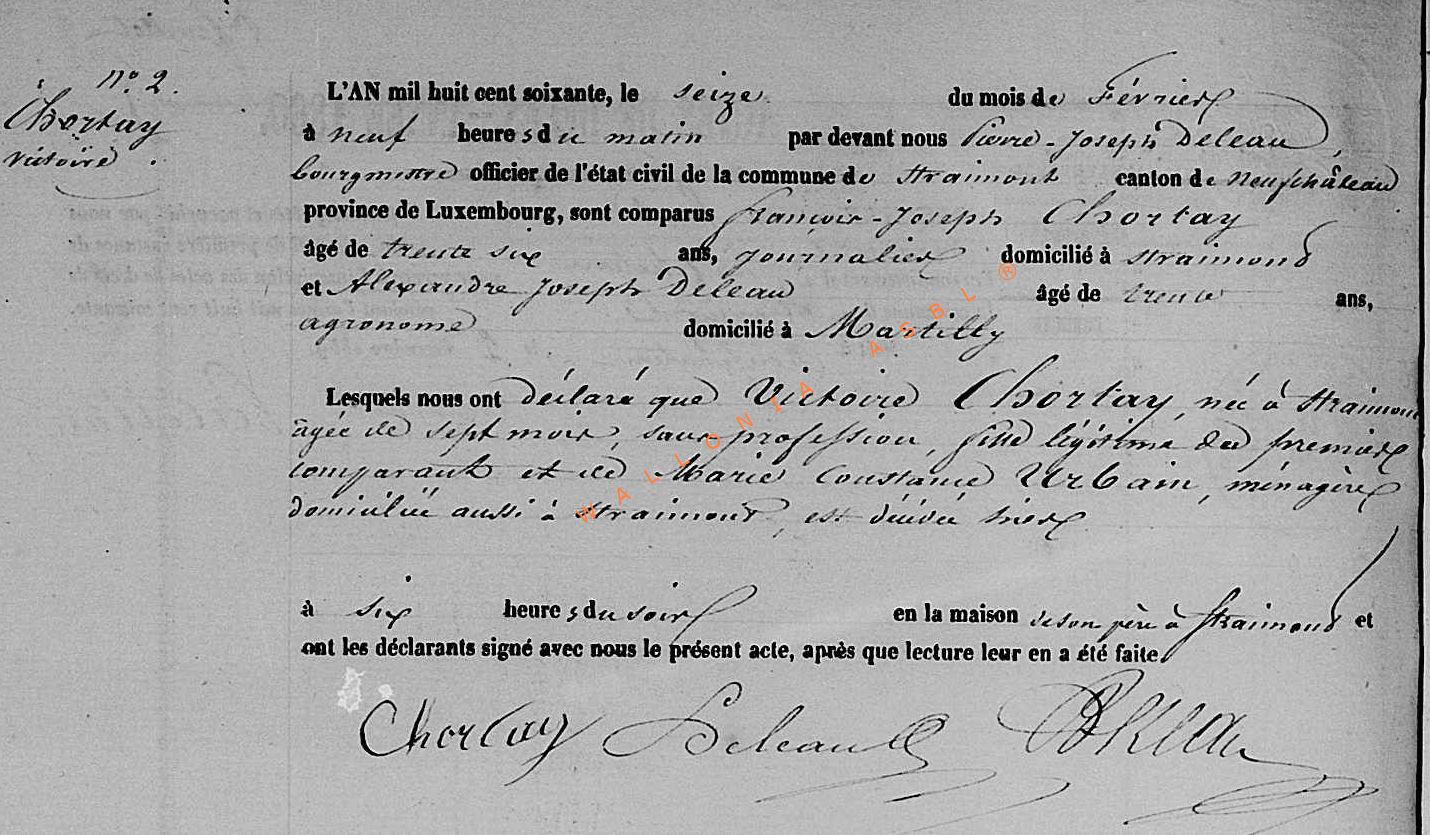 n° 2.
Chortay
Victoire.
L'AN mil huit cent soixante, le seize du mois de Février
à neuf heures du matin par devant nous Pierre-Joseph Deleau,
bourgmestre officier de l'état civil de la commune de Straimont canton de Neufchâteau
province de Luxembourg, sont comparus françois-Joseph Chortay
âgé de trente six ans, journalier domicilié à Straimont
et Alexandre Joseph Deleau âgé de trente ans,
agronome domicilié à Martilly
Lesquels nous ont déclaré que Victoire Chortay, née à Straimont
âgée de sept mois, sans profession, fille légitime du premier
comparant et de Marie Constance Urbain, ménagère
domiciliée aussi à Straimont, est décédée hier
à six heures du soir en la maison de son père à Straimont et
ont les déclarants signé avec nous le présent acte, après que lecture leur en a été faite.
Chortay Deleau Deleau
WALLONIA ASBL ®